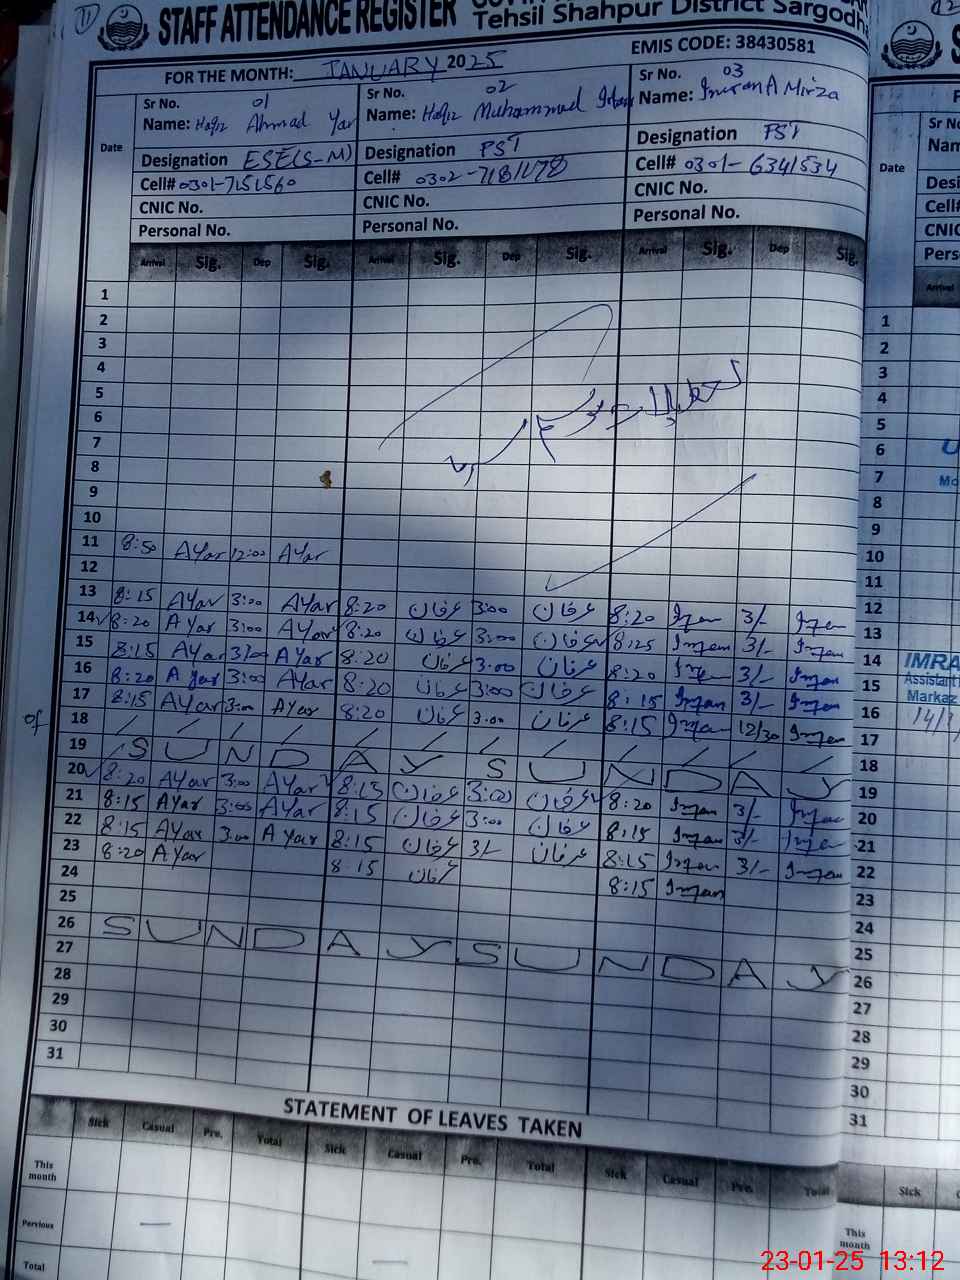 11
STAFF ATTENDANCE REGISTER
Tehsil Shahpur District Sargodha
EMIS CODE: 38430581
FOR THE MONTH: JANUARY 2025
Date
Sr No. 01 Sr No. 02 Sr No. 03
Name: Hafiz Ahmad Yar Name: Hafiz Muhammad Name: Imran A Mirza
Designation ESE(S-M) Designation PST Designation PST
Cell# 0301-7151560 Cell# 0302-7181178 Cell# 0301-6341534
CNIC No. CNIC No. CNIC No.
Personal No. Personal No. Personal No.
Arrival Sig. Dep Sig. Arrival Sig. Dep Sig. Arrival Sig. Dep Sig.
1
2
3
4
5
6
7
8
9
10
تعطیلات موسم سرما
11 8:50 AYar 12:00 AYar
12
13 8:15 AYar 3:00 AYar 8:20 عرفان 3:00 عرفان 8:20 Imran 3/- Imran
14 8:20 AYar 3:00 AYar 8:20 عرفان 3:00 عرفان 8:25 Imran 3/- Imran
15 8:15 AYar 3:00 AYar 8:20 عرفان 3:00 عرفان 8:20 Imran 3/- Imran
16 8:20 AYar 3:00 AYar 8:20 عرفان 3:00 عرفان 8:15 Imran 3/- Imran
17 8:15 AYar 3:00 AYar 8:20 عرفان 3:00 عرفان 8:15 Imran 12/30 Imran
18
19 SUNDAY SUNDAY
20 8:20 AYar 3:00 AYar 8:15 عرفان 3:00 عرفان 8:20 Imran 3/- Imran
21 8:15 AYar 3:00 AYar 8:15 عرفان 3:00 عرفان 8:15 Imran 3/- Imran
22 8:15 AYar 3:00 AYar 8:15 عرفان 3/- عرفان 8:15 Imran 3/- Imran
23 8:20 AYar 8:15 عرفان 8:15 Imran
24
25
26 SUNDAY SUNDAY
27
28
29
30
31
STATEMENT OF LEAVES TAKEN
Sick Casual Pre. Total Sick Casual Pre. Total Sick Casual Pre. Total
This month
Pervious
Total
Sr No
Nam
Date
Desi
Cell#
CNIC
Pers
Arrival
1
2
3
4
5
6
7
8
9
10
11
12
13
14
15
16
17
18
19
20
21
22
23
24
25
26
27
28
29
30
31
IMRA
Assistant
Markaz
Sick
This month
23-01-25 13:12